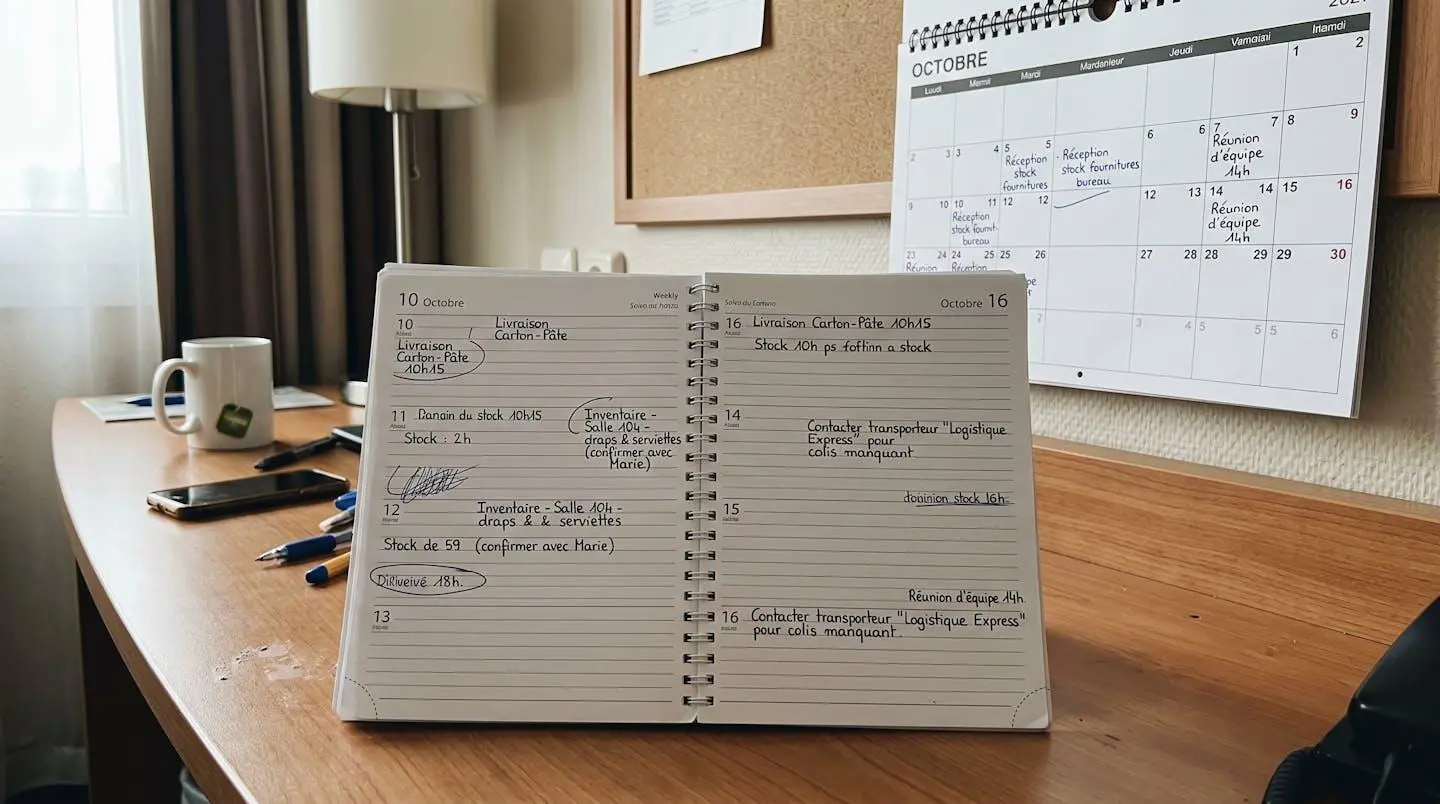 OCTOBRE
Jeudi
1 2
2 3 3 4 5 5 6 6 7 7 8 9
Réception
stock
fournitures
Réception
stock fournitures
bureau
Réunion
d'équipe
14h
9 10 10 11 12 12 12 13 14 14 15 16
Réception
stock
bureau
Réunion
d'équipe
14h
23 24 24 25 25 26 27 28 28 29 29 30
Réunion
3 4 5 5 5 6
10 Octobre
Weekly
10
Livraison
Carton-Pâte
Livraison
Carton-Pâte
10h15
11 du stock 10h15
Stock : 2h
Inventaire -
Salle 104 -
draps & serviettes
(confirmer avec
Marie)
12 Inventaire - Salle 104 -
draps & & serviettes
Stock de 59 (confirmer avec Marie)
18h.
13
Octobre 16
16 Livraison Carton-Pâte 10h15
Stock 10h ps a stock
14
Contacter transporteur "Logistique
Express" pour
colis manquant
stock 16h
15
Réunion d'équipe 14h
16 Contacter transporteur "Logistique Express"
pour colis manquant.